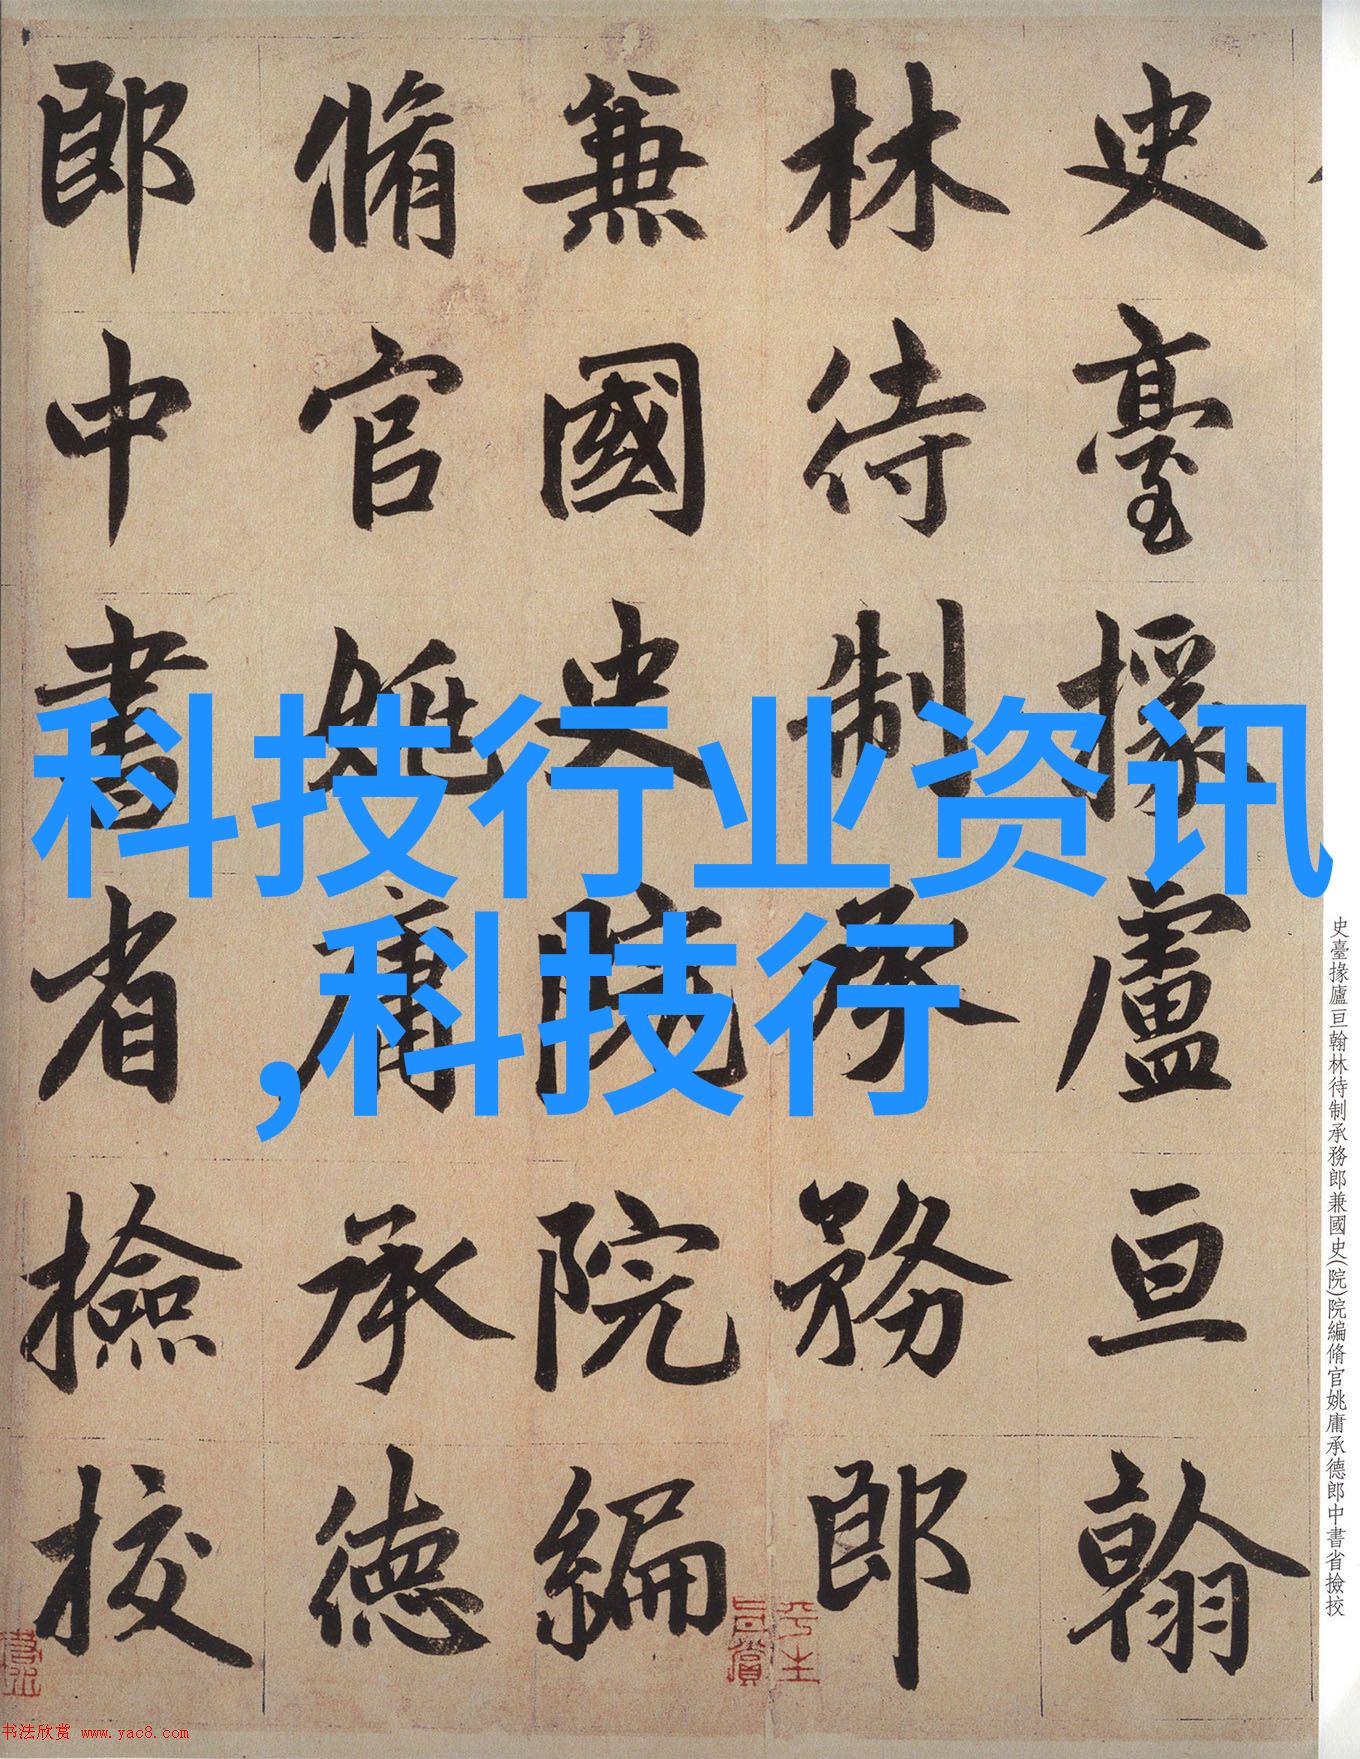 史臺掾盧亘翰
林待制承務郎
兼國史院院編
脩官姚庸承德
郎中書省撿挍
科技行业资讯
,科技行
史臺掾廬亘翰林待制承務郎兼國史(院)院編脩官姚庸承德郎中書省撿挍
书法欣赏 www.yac8.com